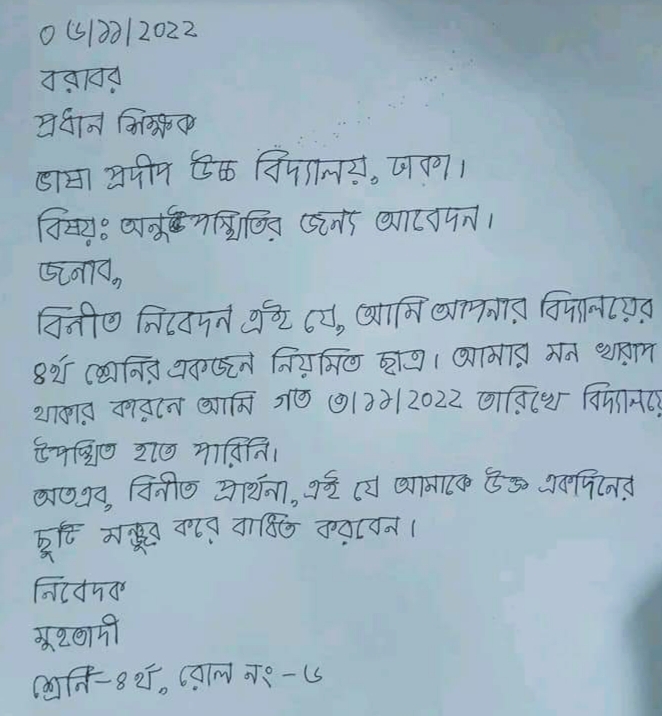 ০৬/১১/2022
বরাবর
প্রধান শিক্ষক
ভাষা প্রদীপ উচ্চ বিদ্যালয়, ঢাকা।
বিষয়ঃ অনুউপস্থিতির জন্য আবেদন।
জনাব,
বিনীত নিবেদন এই যে, আমি আপনার বিদ্যালয়ের
৪র্থ শ্রেনির একজন নিয়মিত ছাত্র। আমার মন খারাপ
থাকার কারনে আমি গত ৩/১১/2022 তারিখে বিদ্যালয়ে
উপস্থিত হতে পারিনি।
অতএব, বিনীত প্রার্থনা, এই যে আমাকে উক্ত একদিনের
ছুটি মন্জুর করে বাধিত করবেন।
নিবেদক
মুহতাদী
শ্রেনি-৪র্থ, রোল নং - ৬